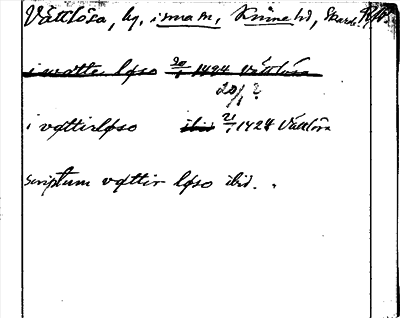 Vättlösa, by, i sn a m n, Kinne hd, Skarab.
i wätte løso 20/1 1424 Vättlösa
20/1 ?
i vættirløso ibid 21/1 1424 Vättlösa
scriptum vættir løso ibid.